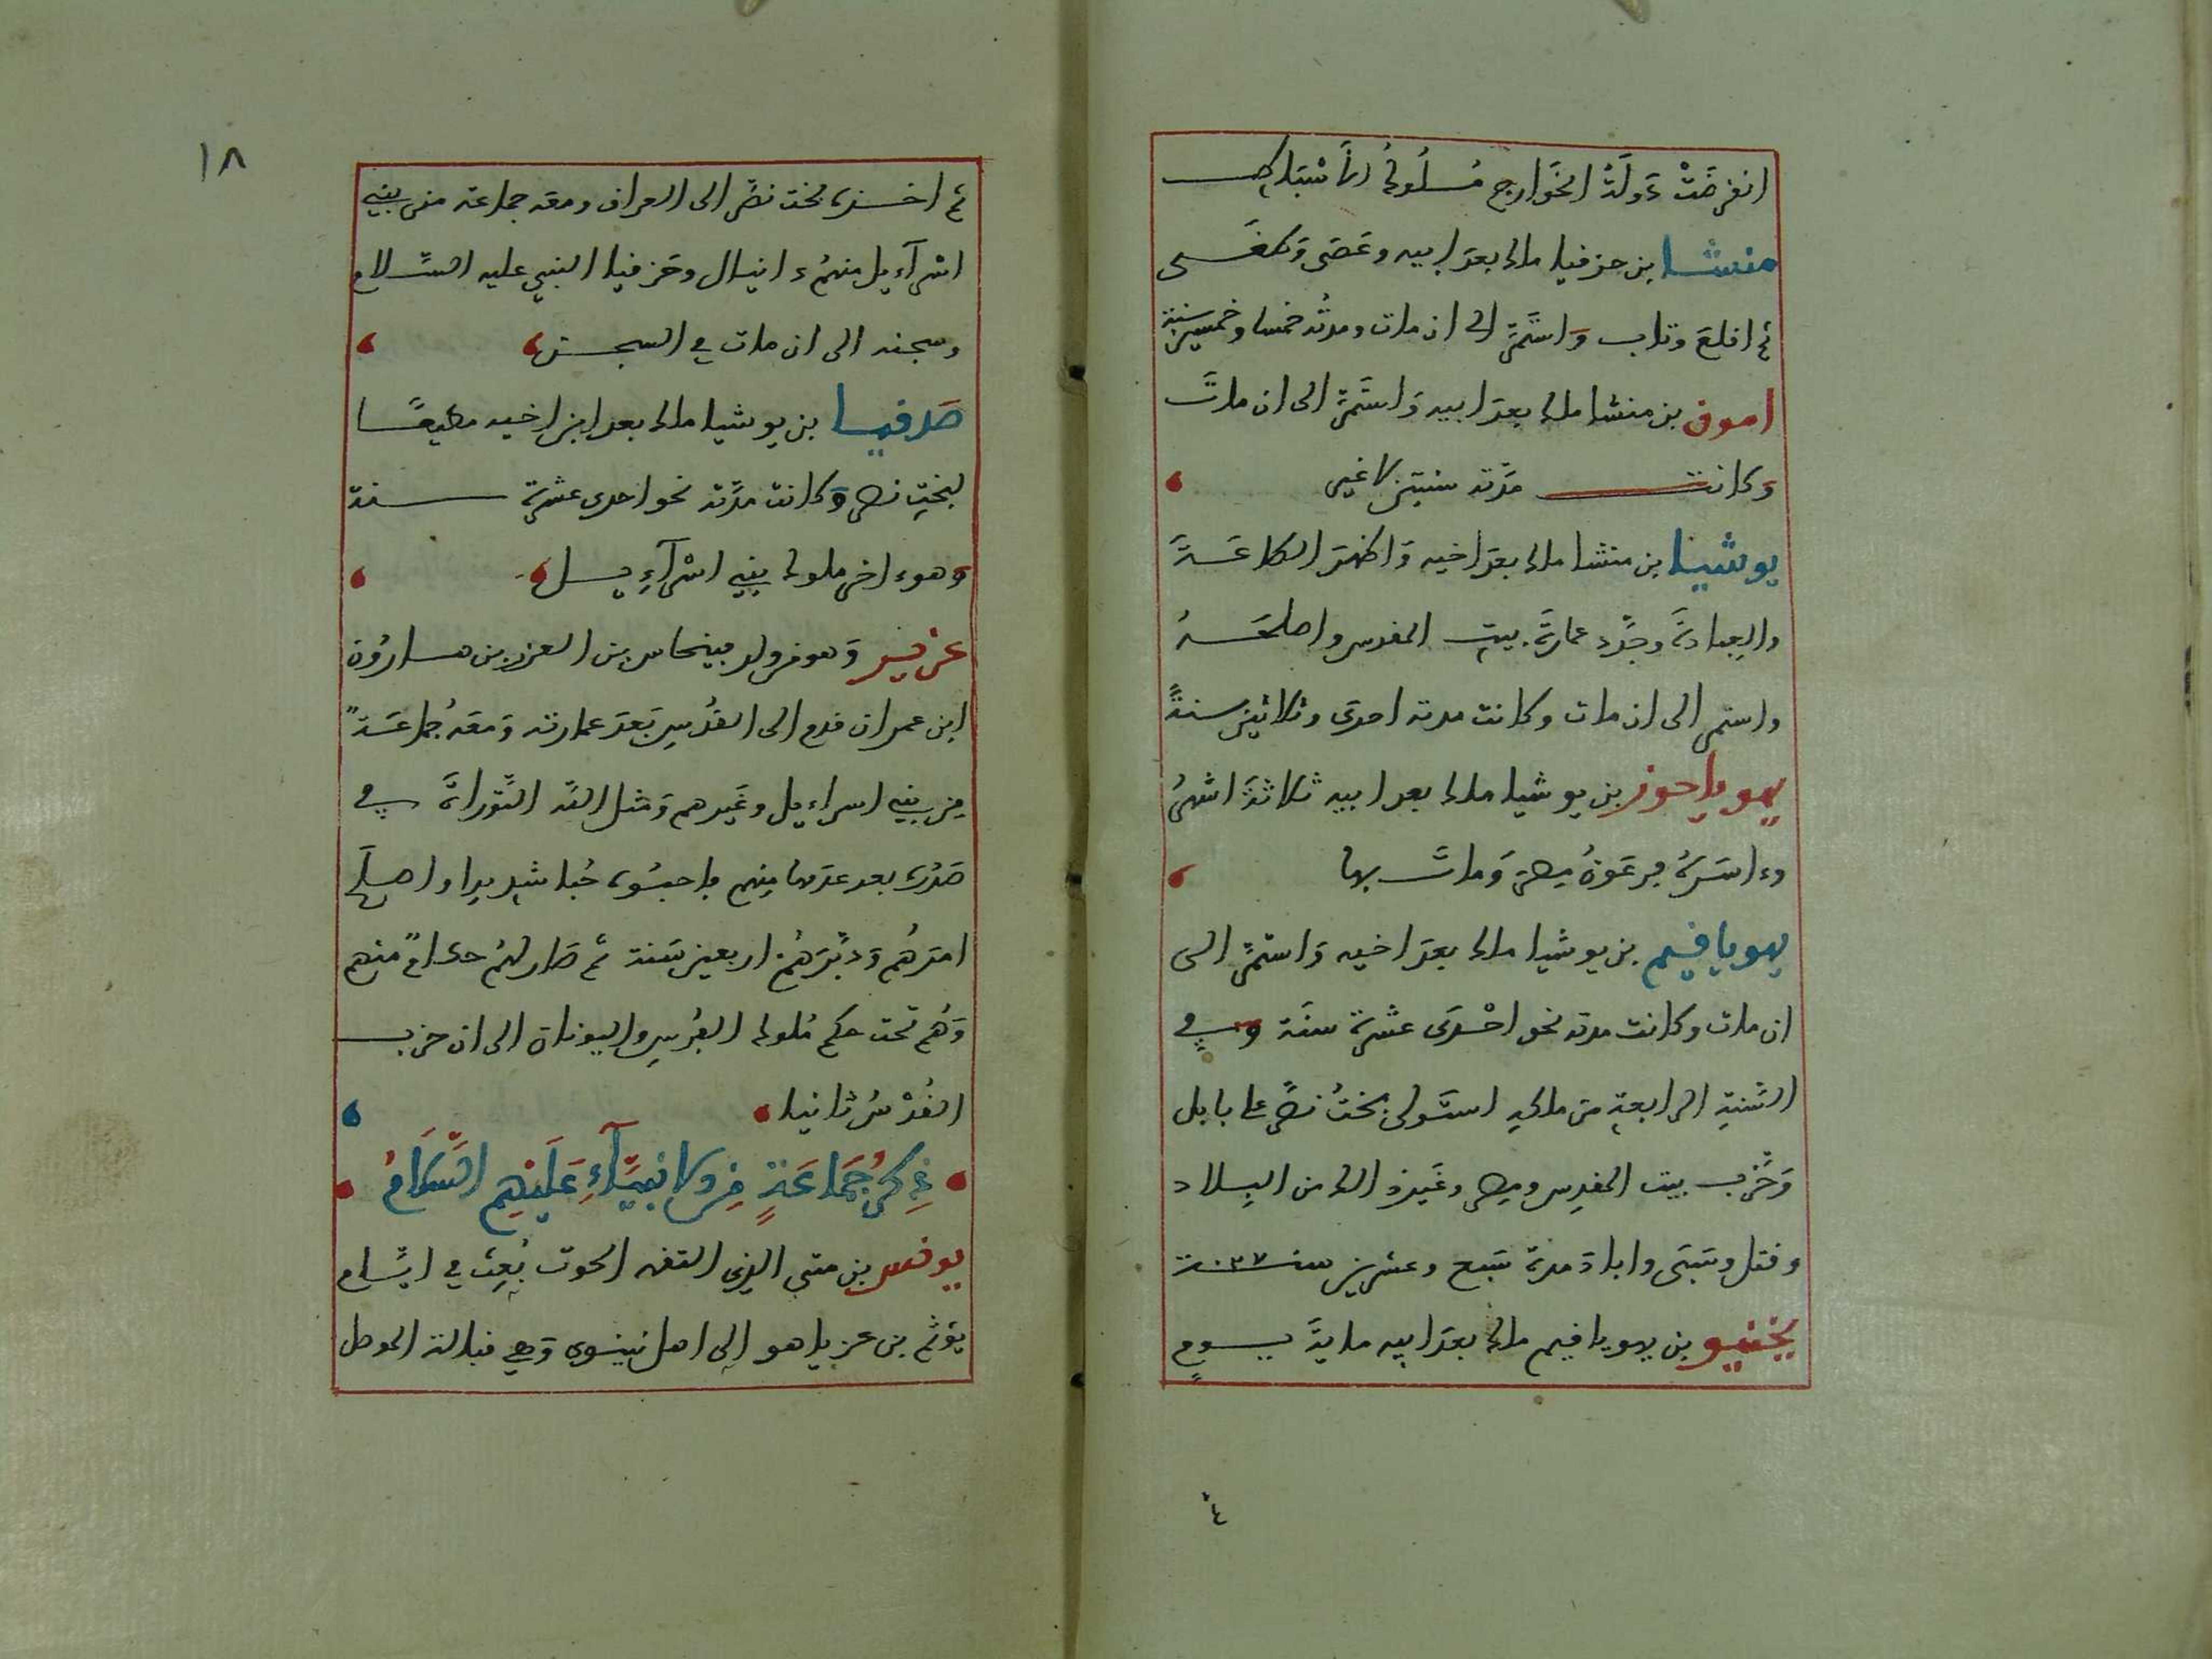 انقرضت دولة الخوارج ملوك الاسباط
منشا بن حزقيا ملك بعد ابيه وعصى وطغى
ثم اقلع وتاب واستمر الى ان مات ومدته خمسا وخمسين سنة
امون بن منشا ملك بعد ابيه واستمر الى ان مات
وكانت مدته سنتين لا غير
يوشيا بن منشا ملك بعد اخيه واظهر الطاعة
والعبادة وجدد عمارة بيت المقدس واصلحه
واستمر الى ان مات وكانت مدته احدى وثلاثين سنة
يهوياحوز بن يوشيا ملك بعد ابيه ثلاثة اشهر
واسره فرعون مصر ومات بها
يهوياقيم بن يوشيا ملك بعد اخيه واستمر الى
ان مات وكانت مدته نحو احدى عشرة سنة وفي
السنة الرابعة من ملكه استولى بخت نصر على بابل
وخرب بيت المقدس ومصر وغير ذلك من البلاد
وقتل وسبى واباد مدة سبع وعشرين سنة ٠٣٧
يخنيو بن يهوياقيم ملك بعد ابيه ماية يوم
٤
١٨
ثم اخذه بخت نصر الى العراق ومعه جماعة من بني
اسرآءيل منهم دانيال وحزقيل النبي عليه السلام
وسجنه الى ان مات في السجن
صدقيا بن يوشيا ملك بعد ابن اخيه مطيعا
لبخت نصر وكانت مدته نحو احدى عشرة سنة
وهو ءاخر ملوك بني اسرآءيل
عزير وهو من ولد فينحاس بن العزر بن هارون
ابن عمران قدم الى القدس بعد عمارته ومعه جماعة
من بني اسراءيل وغيرهم ومثل الله التوراة في
صدره بعد عدمها منهم فاحبوه حبا شديدا واصلح
امرهم ودبرهم اربعين سنة ثم صار لهم حكام منهم
وهم تحت حكم ملوك الفرس واليونان الى ان خرب
القدس ثانيا
ذكر جماعة من الانبيآء عليهم السلام
يونس بن متى الذي التقمه الحوت بعث في ايام
يوثم بن عزياهو الى اهل نينوى وهي قبالة الموصل